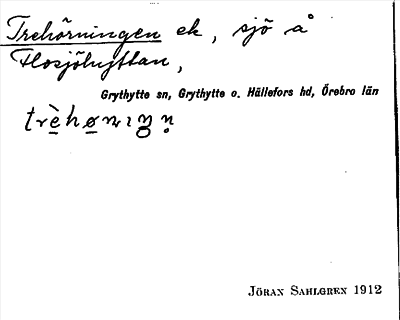 Trehörningen ek, sjö å
Flosjöhyttan,
Grythytte sn, Grythytte o. Hällefors hd, Örebro län
JÖRAN SAHLGREN 1912